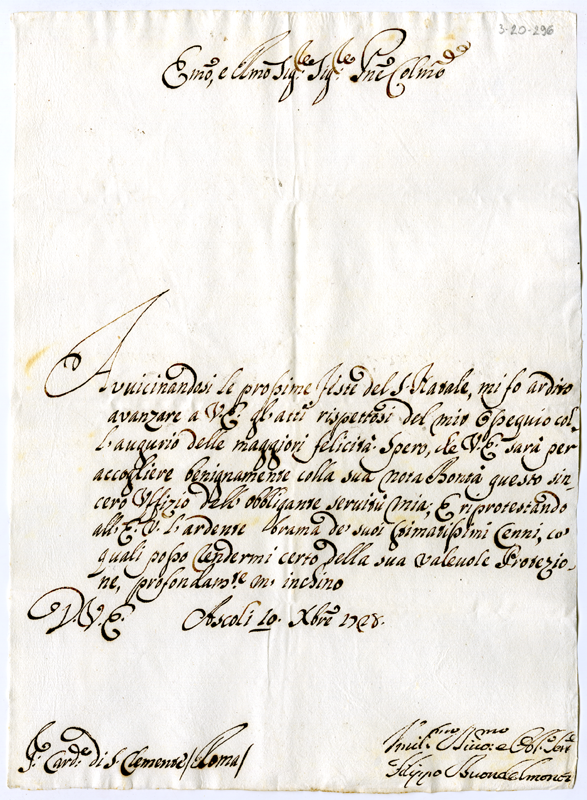 3-20-296
Emo, e Rmo Sig:re Sig:re Pne Colmo
Avvicinandosi le prossime feste del S. Natale, mi fo ardito
avanzare a V.E. gl'atti rispettosi del mio Ossequio col-
l'augurio delle maggiori felicità. Spero, che V.E. sarà per
accogliere benignamente colla sua nota Bontà questo sin-
cero Uffizio dell'obbligante servitù mia; E riprotestando
all'E.V. l'ardente brama de' suoi stimatissimi Cenni, co'
quali posso rendermi certo della sua valevole Protezio-
ne, profondam:te m'inchino
D.V.E. Ascoli 19. Xbre 1728.
S:r Card:e di S. Clemente /Roma/
Umil:mo Divo: e Obl:o Serv
Filippo Buondelmonti